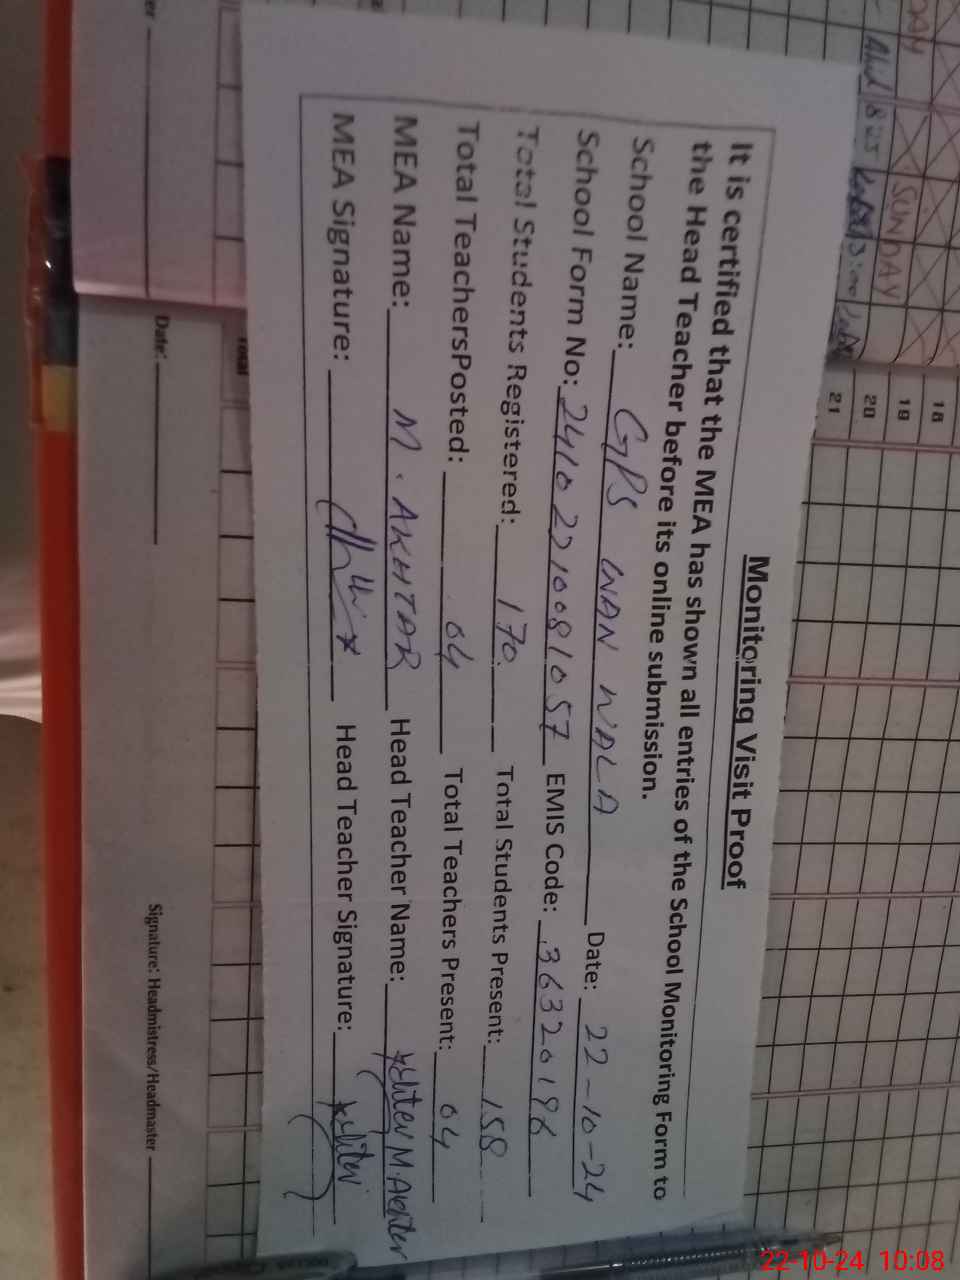 Monitoring Visit Proof
It is certified that the MEA has shown all entries of the School Monitoring Form to
the Head Teacher before its online submission.
School Name: GPS WAN WALA Date: 22-10-24
School Form No: 24102210081057 EMIS Code: 36320196
Total Students Registered: 170 Total Students Present: 158
Total TeachersPosted: 04 Total Teachers Present: 04
MEA Name: M. AKHTAR Head Teacher Name:
MEA Signature: Head Teacher Signature:
SUNDAY
18
19
20
21
Total
Date:
Signature: Headmistress/Headmaster
22-10-24 10:08